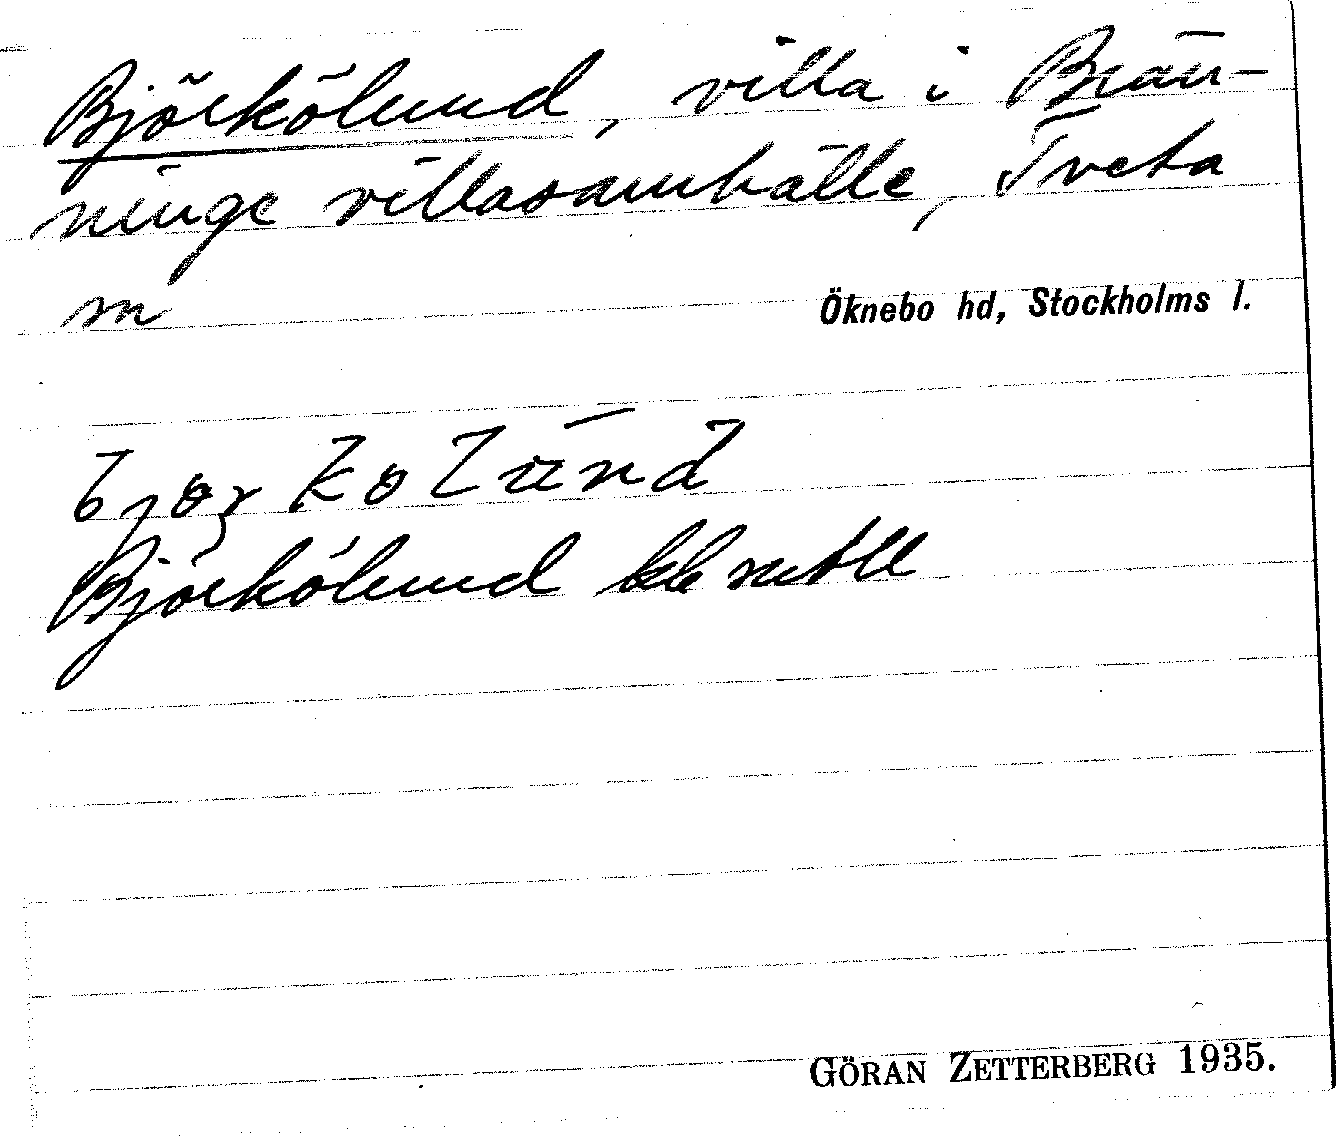 Björkölund, villa i Brän-
ninge villasamhälle, Tveta
sn Öknebo hd, Stockholms l.
Björkölund
GÖRAN ZETTERBERG 1935.